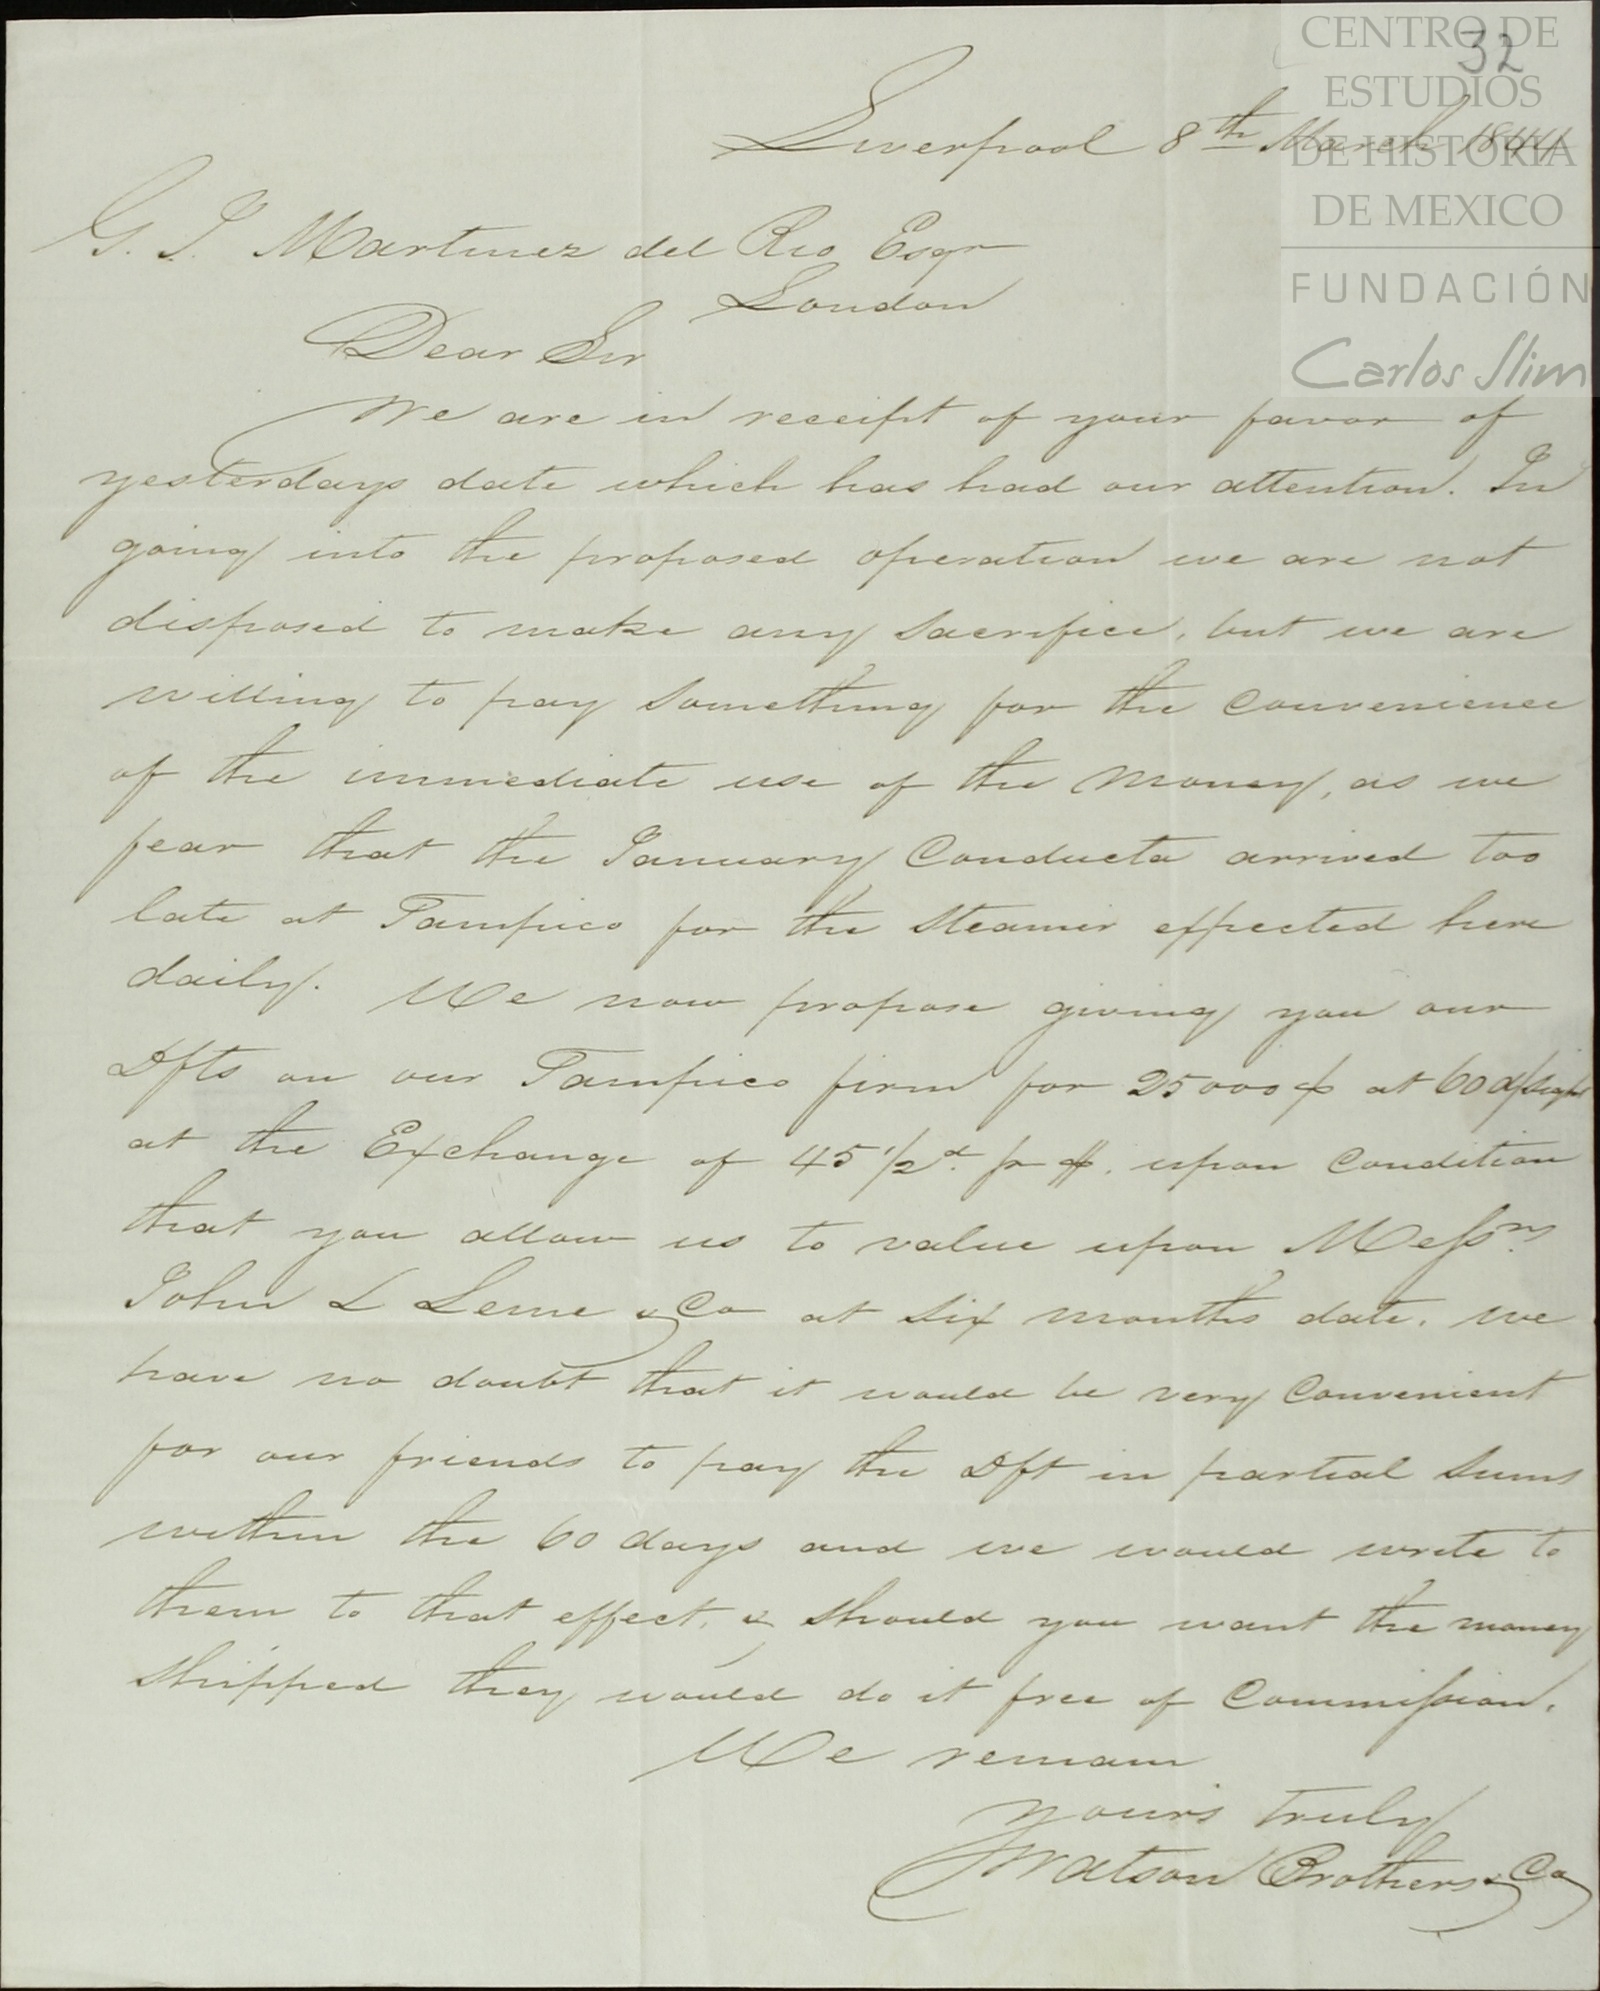 CENTRO DE
ESTUDIOS
DE HISTORIA
DE MEXICO
FUNDACIÓN
Carlos Slim
32
Liverpool 8th March 1844
G. J. Martinez del Rio Esqr
London
Dear Sir
We are in receipt of your favor of
yesterdays date which has had our attention. In
going into the proposed operation we are not
disposed to make any sacrifice, but we are
willing to pay something for the convenience
of the immediate use of the money, as we
fear that the January Conducta arrived too
late at Tampico for the steamer expected here
daily. We now propose giving you our
Dfts on our Tampico firm for 25000$ at 60 d/sight
at the Exchange of 45 1/2d. pr $. upon condition
that you allow us to value upon Messrs
John L Leme & Co at six months date. we
have no doubt that it would be very convenient
for our friends to pay the Dft in partial sums
within the 60 days and we would write to
them to that effect, & should you want the money
shipped they would do it free of Commission.
We remain
yours truly
Watson Brothers & Co